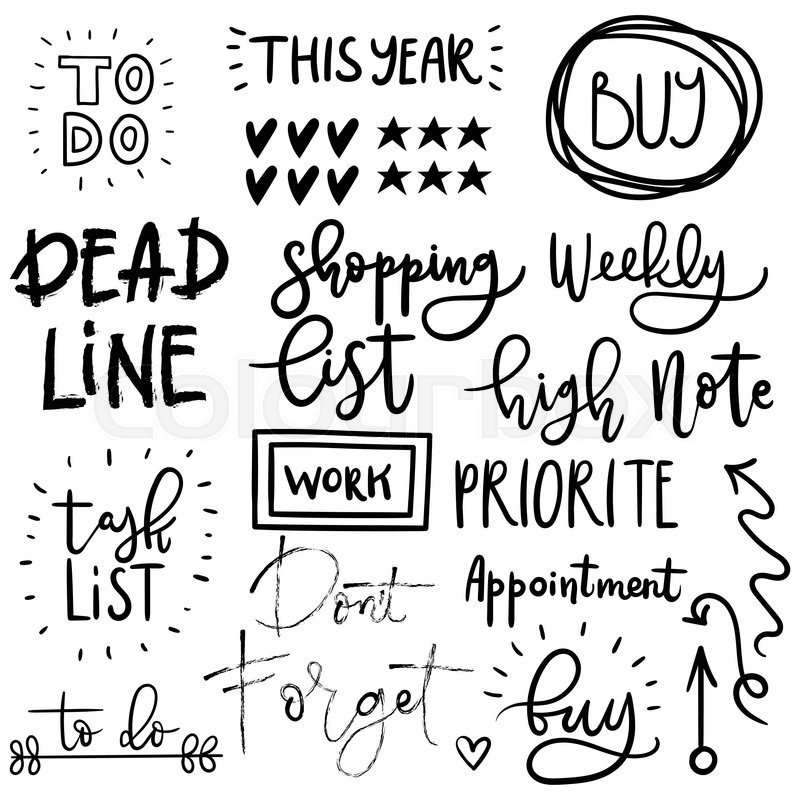 TO
DO
THIS YEAR
BUY
DEAD
LINE
Shopping
list
Weekly
high Note
WORK
PRIORITE
task
LIST
Don't
Forget
Appointment
to do
buy
colourbox